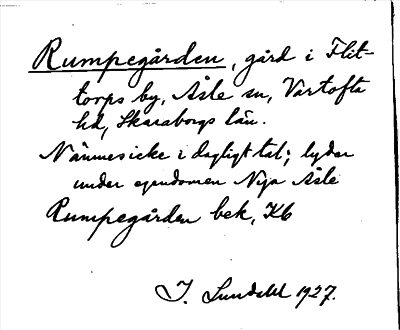 Rumpegården, gård i Flit-
torps by, Åsle sn, Vartofta
hd, Skaraborgs län.
Nämnes icke i dagligt tal; lyder
under egendomen Nya Åsle
Rumpegården bek, K6
I. Lundahl 1927.